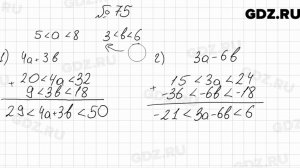 GDZ.RU
№ 75
5<a<8 3<b<6
1) 4a+3b
+ 20<4a<32
9<3b<18
29<4a+3b<50
2) 3a-6b
+ 15<3a<24
-36<-6b<-18
-21<3a-6b<6
GDZ.RU